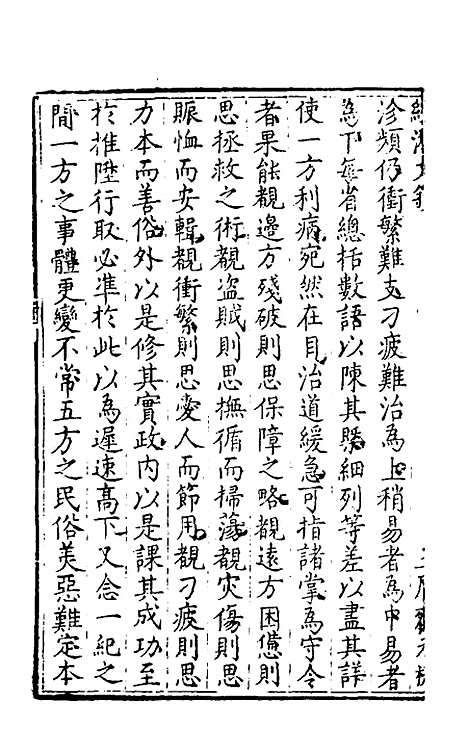 沴頻仍衝繁難支刁疲難治為上稍易者為中易者
為下每省總括數語以陳其槩細列等差以盡其詳
使一方利病宛然在目治道緩急可指諸掌為守令
者果能觀邊方殘破則思保障之略觀遠方困憊則
思拯救之術觀盜賊則思撫循而掃蕩觀灾傷則思
賑恤而安輯觀衝繁則思愛人而節用觀刁疲則思
力本而善俗外以是修其實政内以是課其成功至
於推陞行取必凖於此以為遲速高下又念一紀之
間一方之事體更變不常五方之民俗美惡難定本